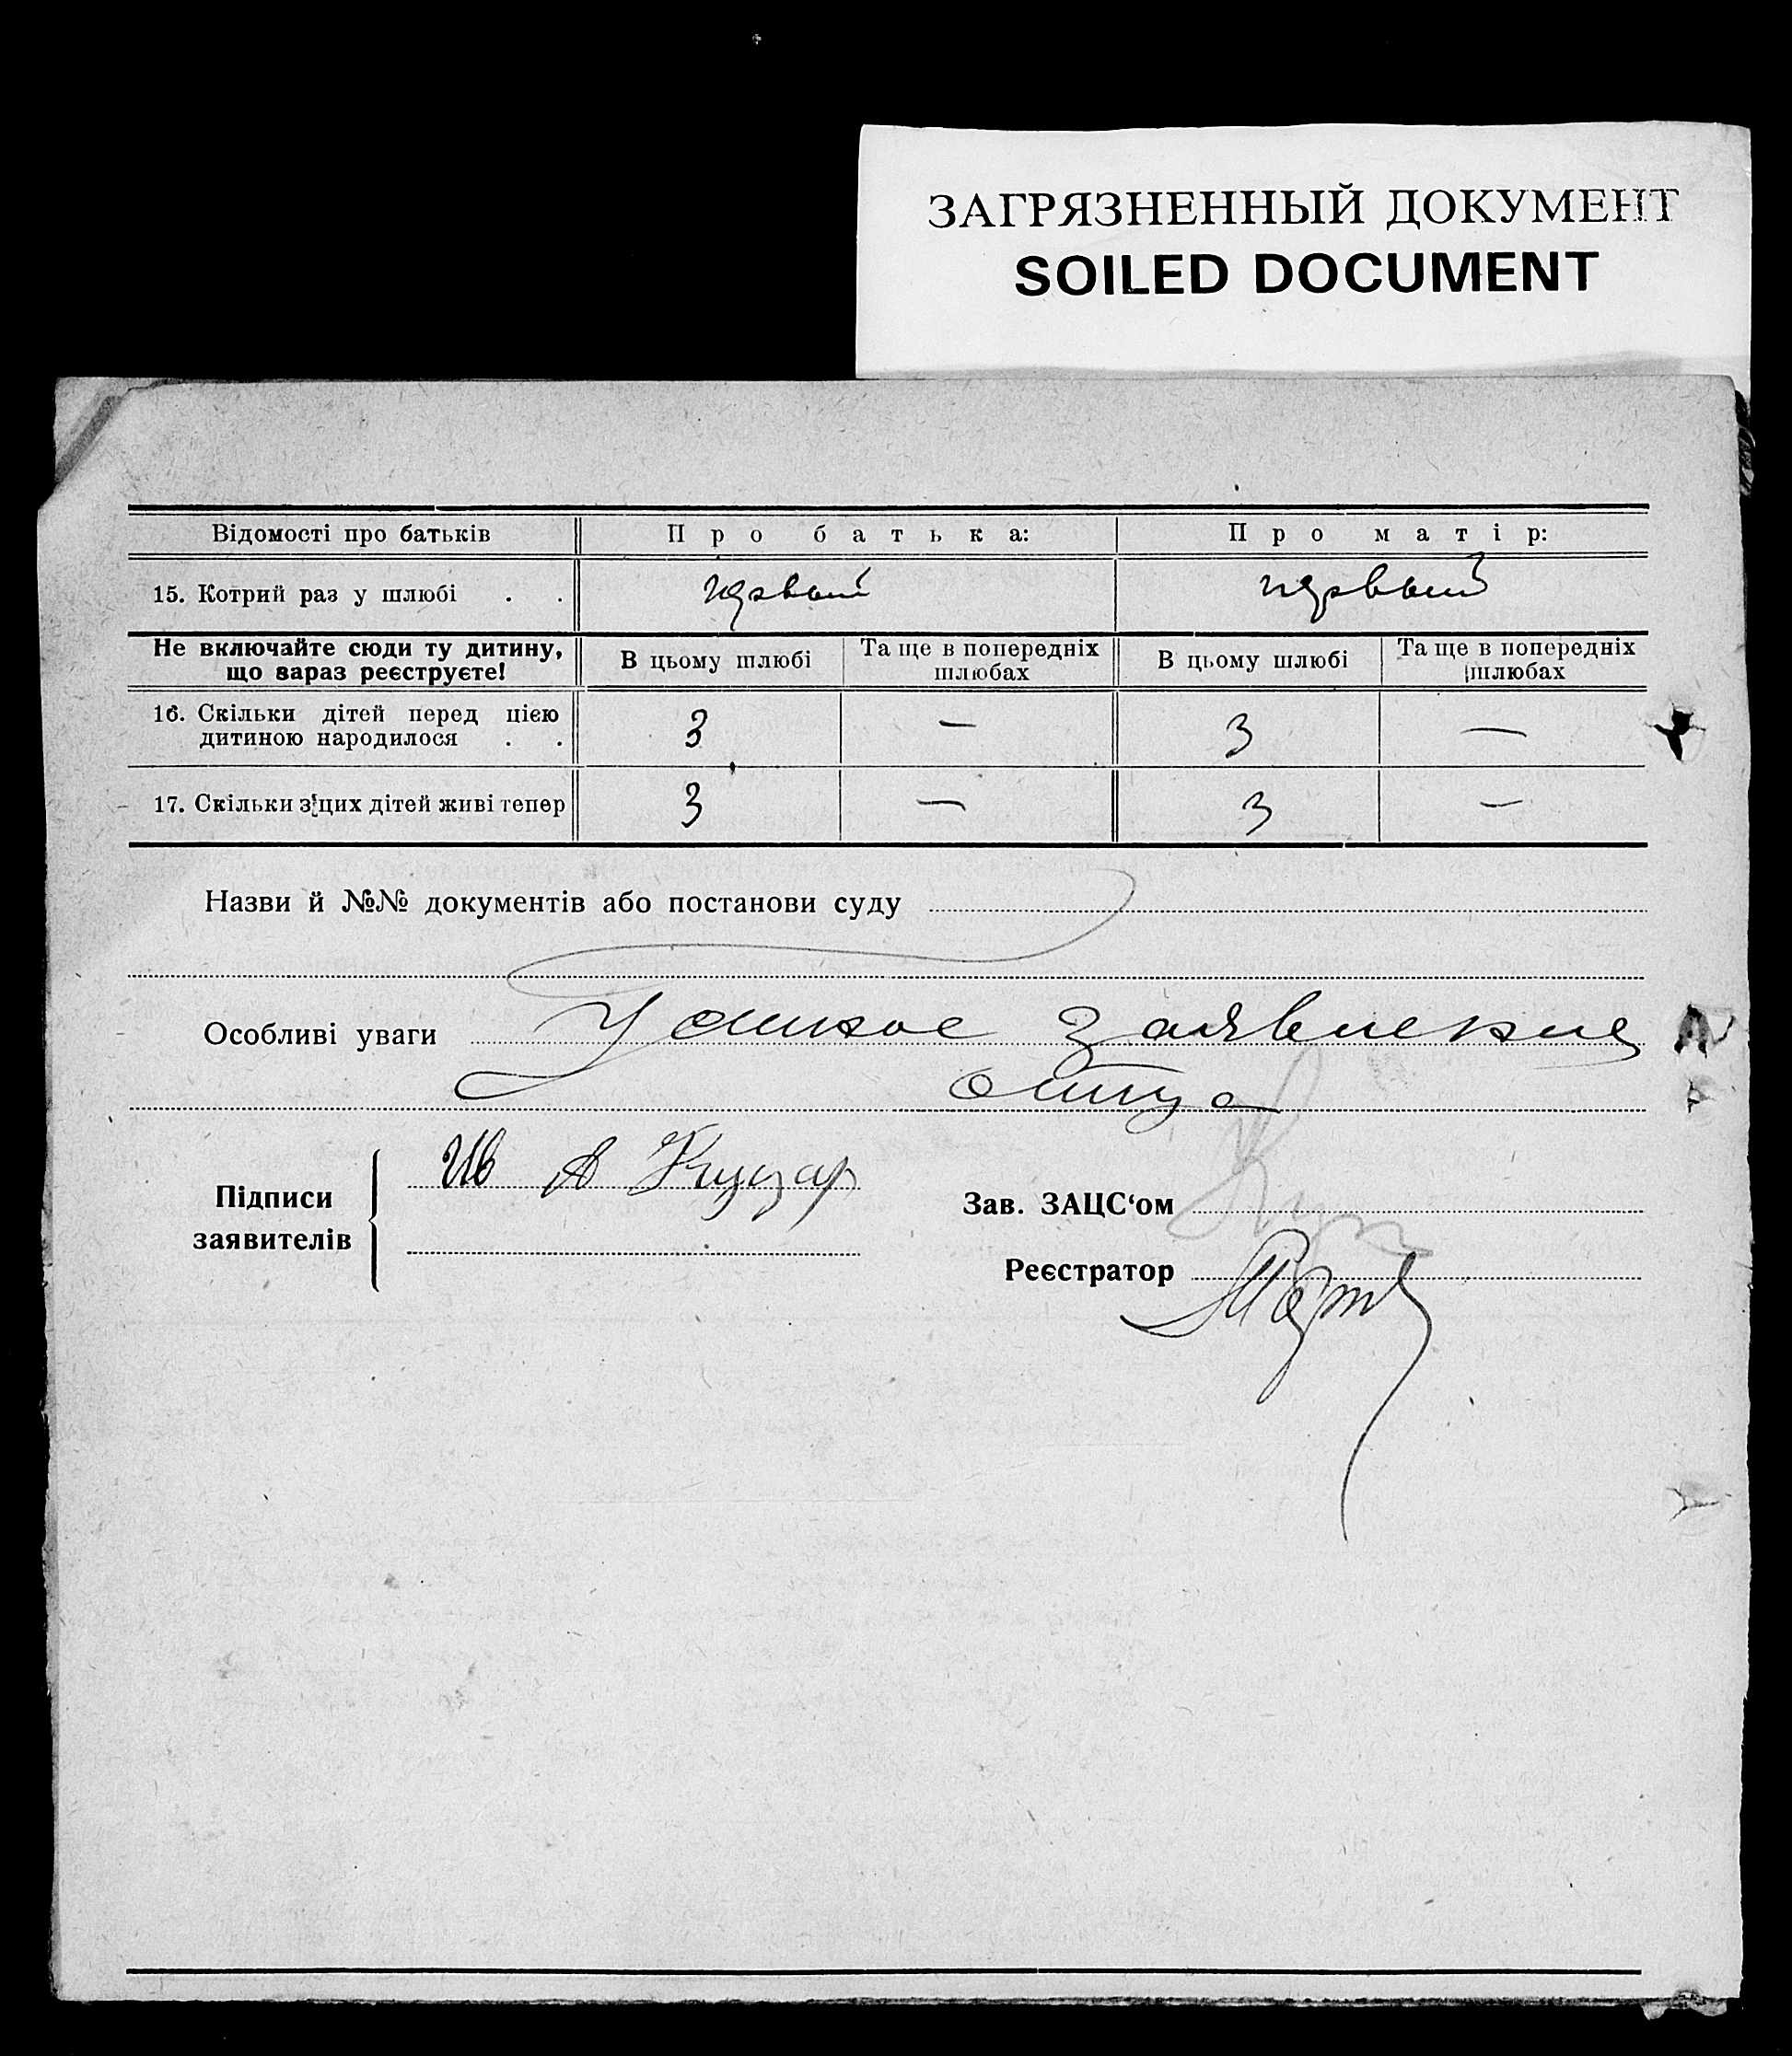 ЗАГРЯЗНЕННЫЙ ДОКУМЕНТ
SOILED DOCUMENT
Відомості про батьків Про батька: Про матір:
15. Котрий раз у шлюбі . . первый первый
Не включайте сюди ту дитину, що зараз реєструєте! В цьому шлюбі Та ще в попередніх шлюбах В цьому шлюбі Та ще в попередніх шлюбах
16. Скільки дітей перед цією дитиною народилося . . 3 — 3 —
17. Скільки з цих дітей живі тепер 3 — 3 —
Назви й №№ документів або постанови суду
Особливі уваги Устное заявление
отца
Підписи заявителів
Зав. ЗАЦС‘ом
Реєстратор